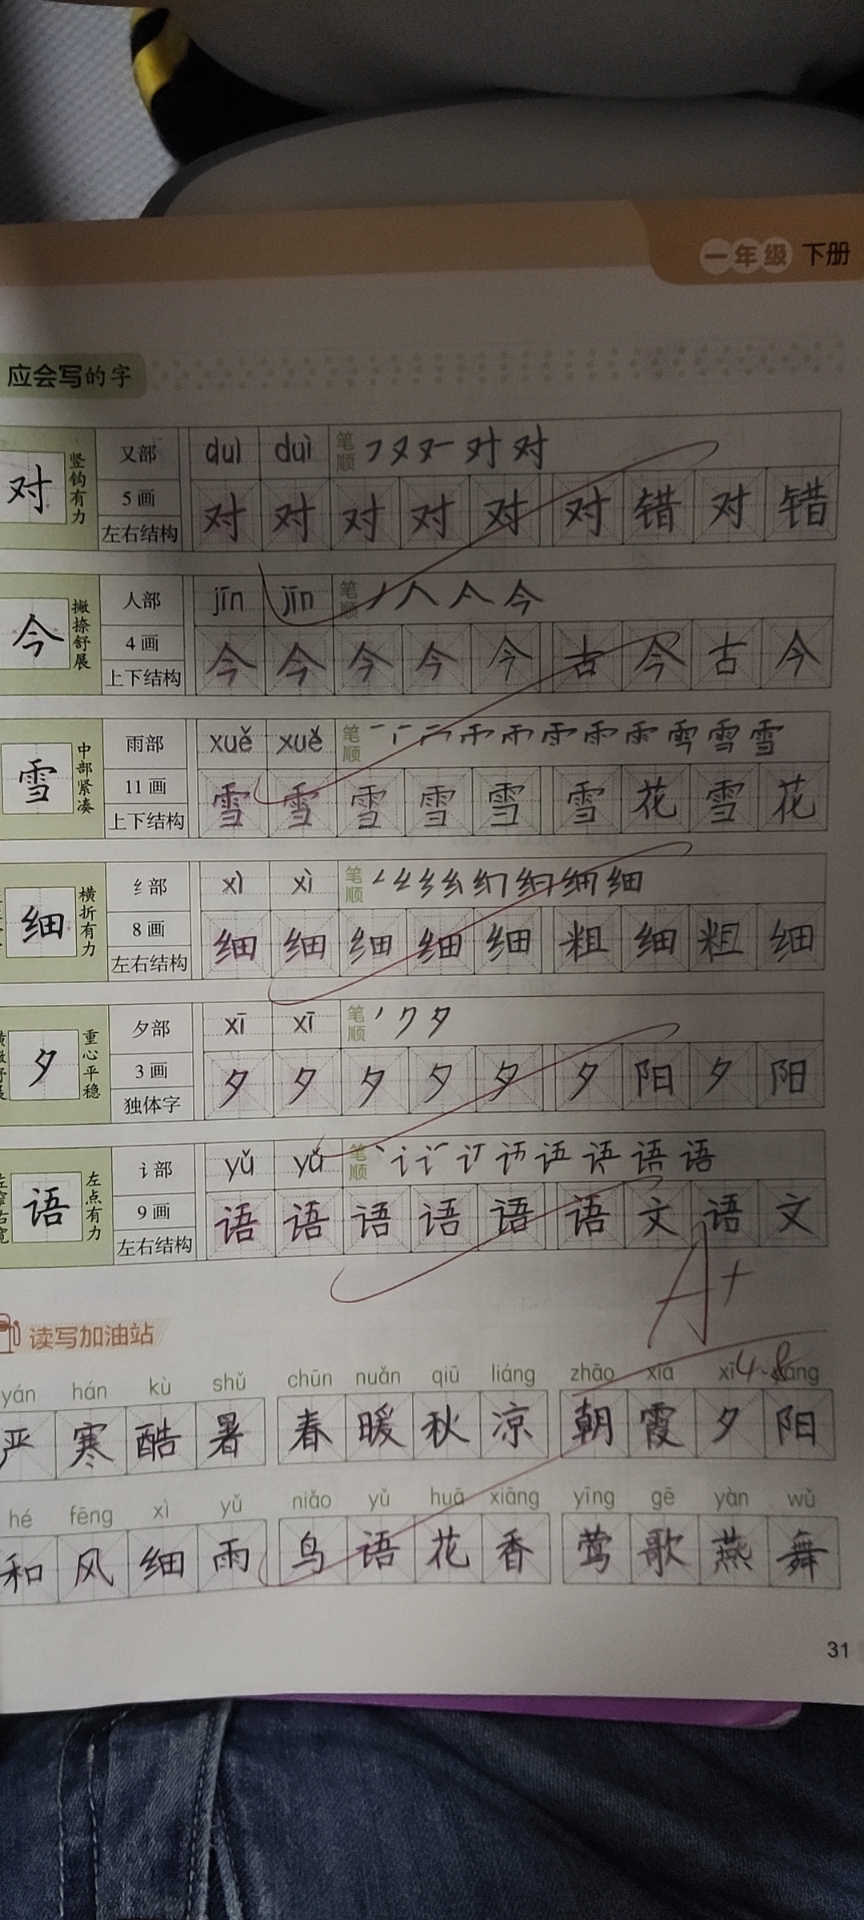 一年级 下册
应会写的字
对 竖钩有力 又部 5画 左右结构
duì duì 笔顺
对 对 对 对 对 对 错 对 错
今 撇捺舒展 人部 4画 上下结构
jīn jīn 笔顺
今 今 今 今 今 古 今 古 今
雪 中部紧凑 雨部 11画 上下结构
xuě xuě 笔顺
雪 雪 雪 雪 雪 雪 花 雪 花
细 横折有力 纟部 8画 左右结构
xì xì 笔顺
细 细 细 细 细 粗 细 粗 细
夕 重心平稳 夕部 3画 独体字
xī xī 笔顺
夕 夕 夕 夕 夕 夕 阳 夕 阳
语 左点有力 讠部 9画 左右结构
yǔ yǔ 笔顺
语 语 语 语 语 语 文 语 文
A+
4.8
读写加油站
yán hán kù shǔ chūn nuǎn qiū liáng zhāo xiá xī yáng
严 寒 酷 暑 春 暖 秋 凉 朝 霞 夕 阳
hé fēng xì yǔ niǎo yǔ huā xiāng yīng gē yàn wǔ
和 风 细 雨 鸟 语 花 香 莺 歌 燕 舞
31